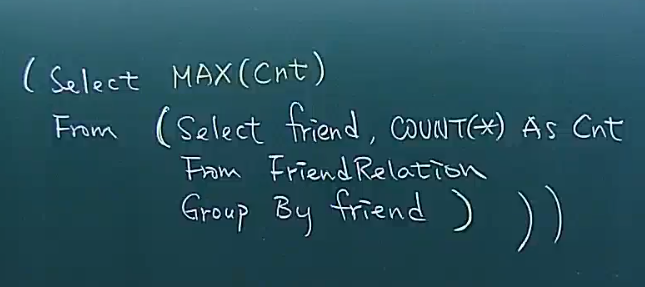 ( Select MAX(Cnt)
From ( Select friend, COUNT(*) As Cnt
From FriendRelation
Group By friend ) ) )